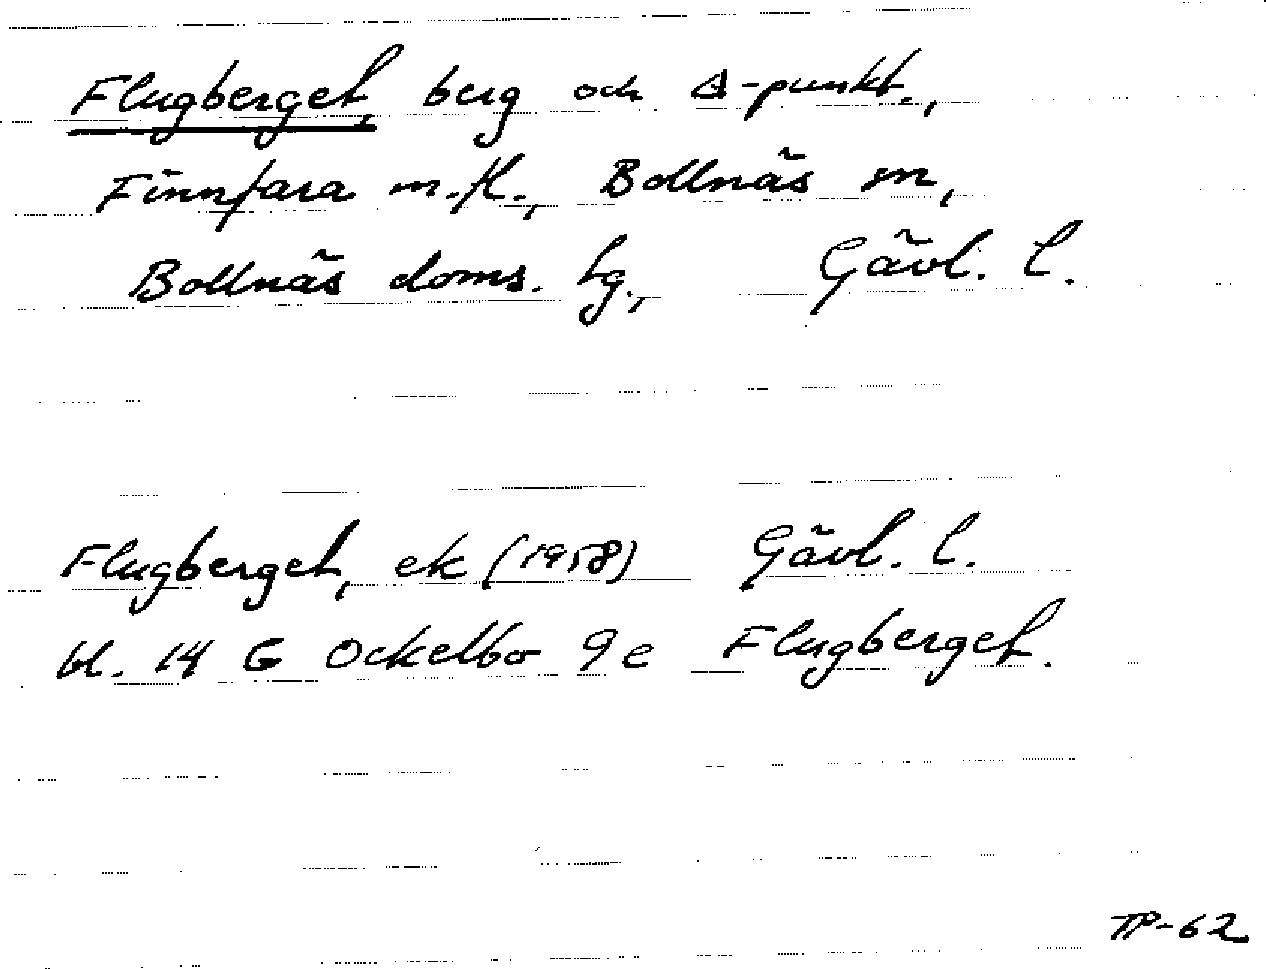 Flugberget, berg och Δ-punkt.,
Finnfara m.fl., Bollnäs sn,
Bollnäs doms. hg., Gävl. l.
Flugberget, ek (1958) Gävl. l.
bl. 14 G Ockelbo 9 e Flugberget.
TP-62